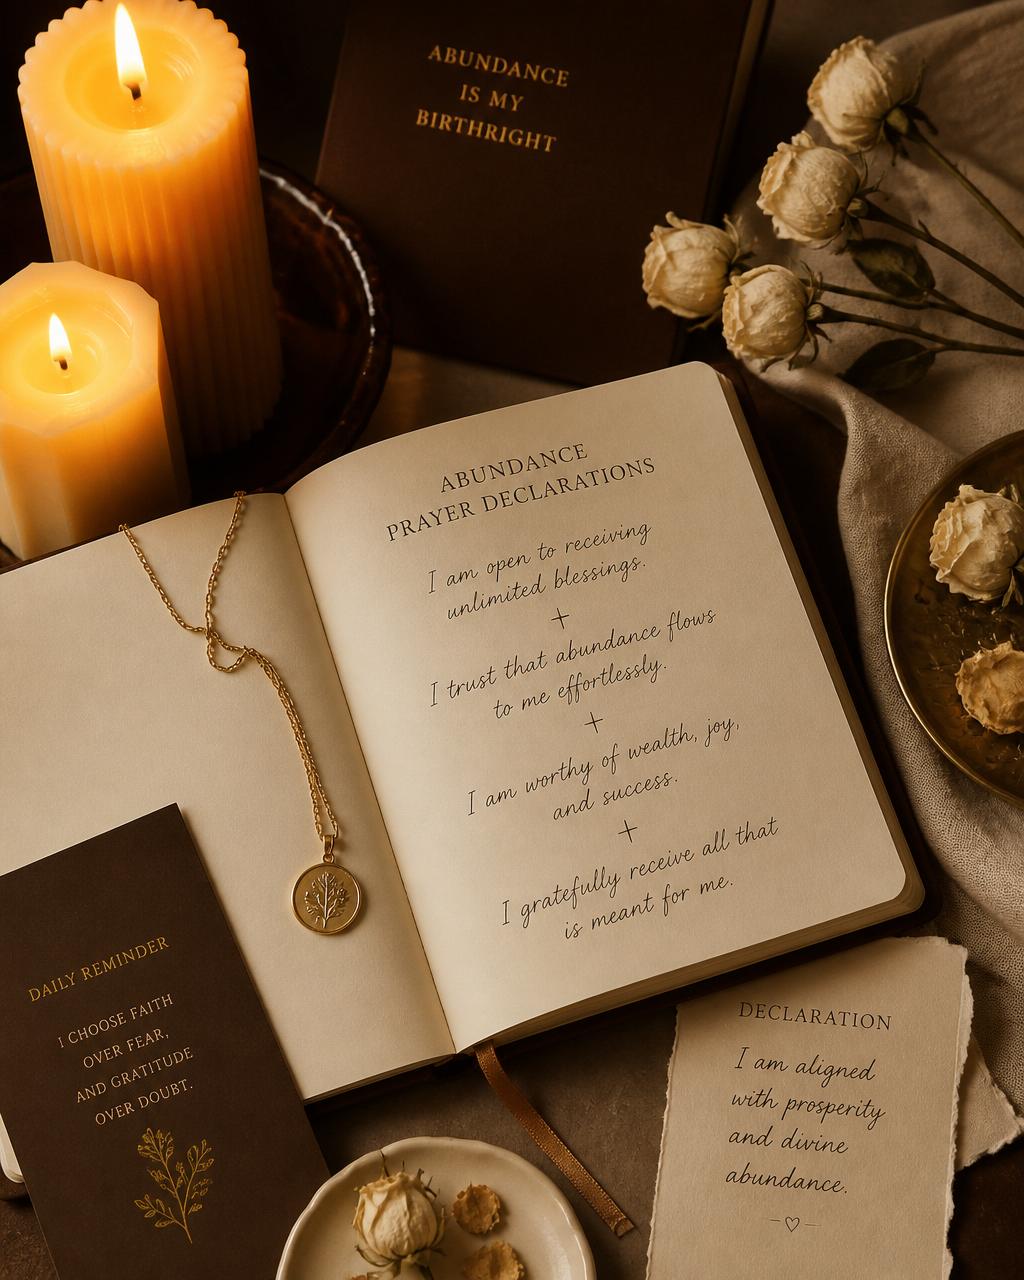 ABUNDANCE
IS MY
BIRTHRIGHT
ABUNDANCE
PRAYER DECLARATIONS
I am open to receiving
unlimited blessings.
I trust that abundance flows
to me effortlessly.
I am worthy of wealth, joy,
and success.
I gratefully receive all that
is meant for me.
DAILY REMINDER
I CHOOSE FAITH
OVER FEAR,
AND GRATITUDE
OVER DOUBT.
DECLARATION
I am aligned
with prosperity
and divine
abundance.